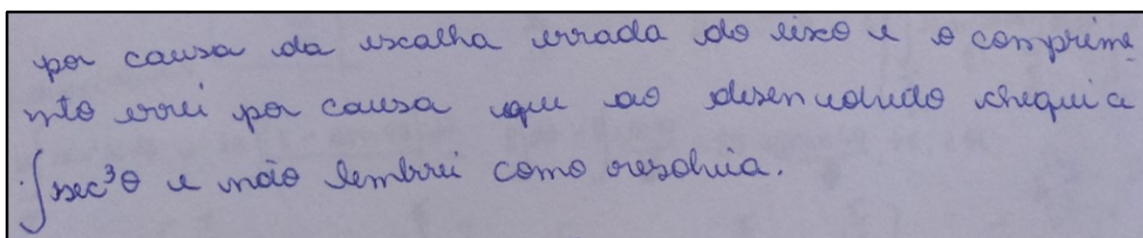 por causa da escolha errada do eixo e o comprime
nto errei por causa que ao desenvolvido cheguei a
∫sec³θ e não lembrei como resolvia.